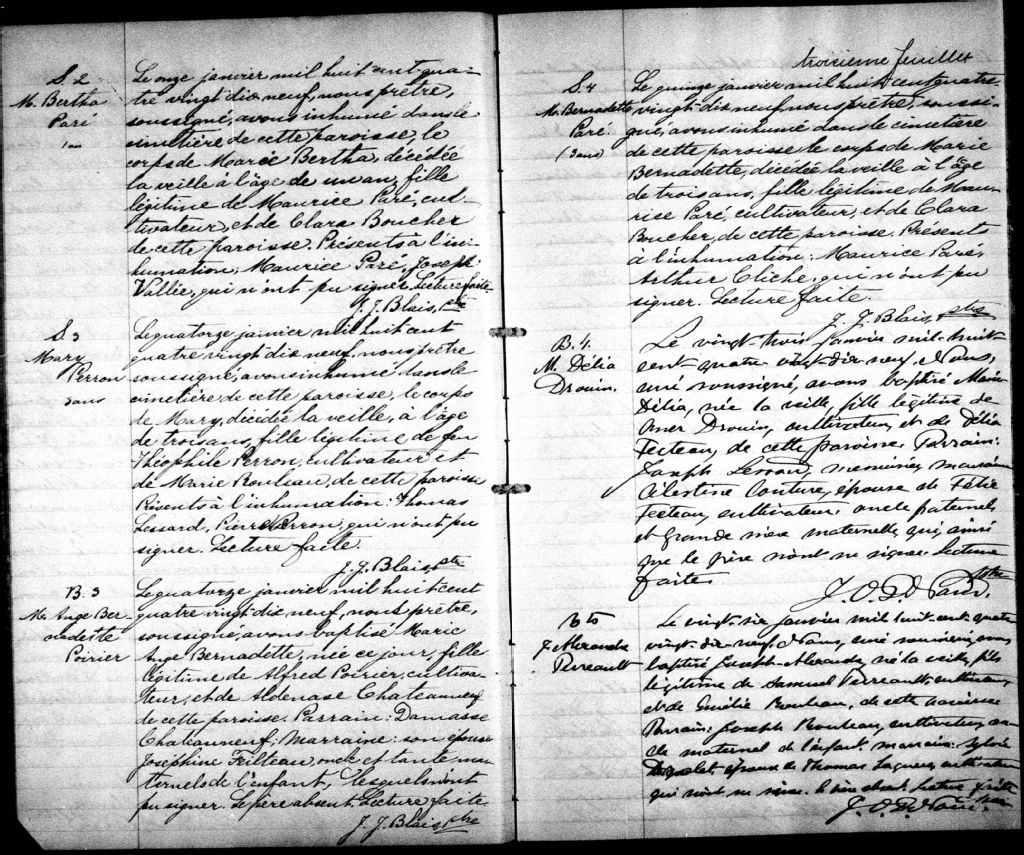 S. 2
M. Bertha
Paré
1 an
Le onze janvier mil huit cent qua-
tre vingt dix neuf, nous prêtre,
soussigné, avons inhumé dans le
cimetière de cette paroisse, le
corps de Marie Bertha, décédée
la veille à l'âge de un an, fille
légitime de Maurice Paré, cul-
tivateur, et de Clara Boucher
de cette paroisse. Présents à l'in-
humation: Maurice Paré, Joseph
Vallée, qui n'ont pu signer. Lecture faite.
J. J. Blais, ptre
S. 3
Mary
Perron
3 ans
Le quatorze janvier mil huit cent
quatre vingt dix neuf, nous prêtre
soussigné, avons inhumé dans le
cimetière de cette paroisse, le corps
de Mary, décédée la veille, à l'âge
de trois ans, fille légitime de feu
Théophile Perron, cultivateur et
de Marie Rouleau, de cette paroisse
Présents à l'inhumation: Thomas
Lessard, Pierre Perron, qui n'ont pu
signer. Lecture faite.
J. J. Blais, ptre
B. 3
M. Ange Ber-
nadette
Poirier
Le quatorze janvier mil huit cent
quatre vingt dix neuf, nous prêtre,
soussigné, avons baptisé Marie
Ange Bernadette, née ce jour, fille
légitime de Alfred Poirier, cultiva-
teur, et de Aldenase Chateauneuf
de cette paroisse. Parrain: Damasse
Chateauneuf; Marraine: son épouse
Joséphine Feilteau, oncle et tante ma-
ternels de l'enfant, lesquels n'ont
pu signer. Le père absent. Lecture faite
J. J. Blais, ptre
troisième feuillet
S. 4
M. Bernadette
Paré
(3 ans)
Le quinze janvier mil huit cent quatre-
vingt dix neuf, nous prêtre, soussi-
gné, avons inhumé dans le cimetière
de cette paroisse le corps de Marie
Bernadette, décédée la veille à l'âge
de trois ans, fille légitime de Mau-
rice Paré, cultivateur, et de Clara
Boucher, de cette paroisse. Présents
à l'inhumation: Maurice Paré,
Arthur Cliche, qui n'ont pu
signer. Lecture faite.
J. J. Blais, ptre
B. 4.
M. Délia
Drouin.
Le vingt-trois janvier mil-huit-
cent-quatre vingt-dix neuf, Nous,
curé soussigné, avons baptisé Marie
Délia, née la veille, fille légitime de
Omer Drouin, cultivateur, et de Délia
Fecteau, de cette paroisse. Parrain:
Joseph menuisier, marraine
Célestine Couture, épouse de Félix
Fecteau, cultivateur, oncle paternel,
et grande mère maternelle, qui, ainsi
que le père n'ont su signer. Lecture
faite.
J. O. ptre.
B 5
J. Alexandre
Perreault
Le vingt-six janvier mil huit-cent-quatre
vingt-dix-neuf, Nous, curé soussigné, avons
baptisé Joseph-Alexandre, né la veille, fils
légitime de Samuel Perreault, cultivateur,
et de Emélie Rouleau, de cette paroisse
Parrain: Joseph Rouleau, cultivateur, on-
cle maternel de l'enfant, marraine: Sylvie
épouse de Thomas cultivateur
qui n'ont su signer. le père absent. Lecture faite
J. O. ptre